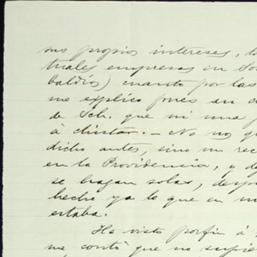 sus propios intereses, 
tuales empresas en 
baldíos) cuanto por las
me explico pones an
de Sch. que ni una
á chistar. — No no
dicho antes, sino un
en la Providencia, y
se hagan solas,
hecho ya lo que en
estaba.
He visto porfin á
me contó que no